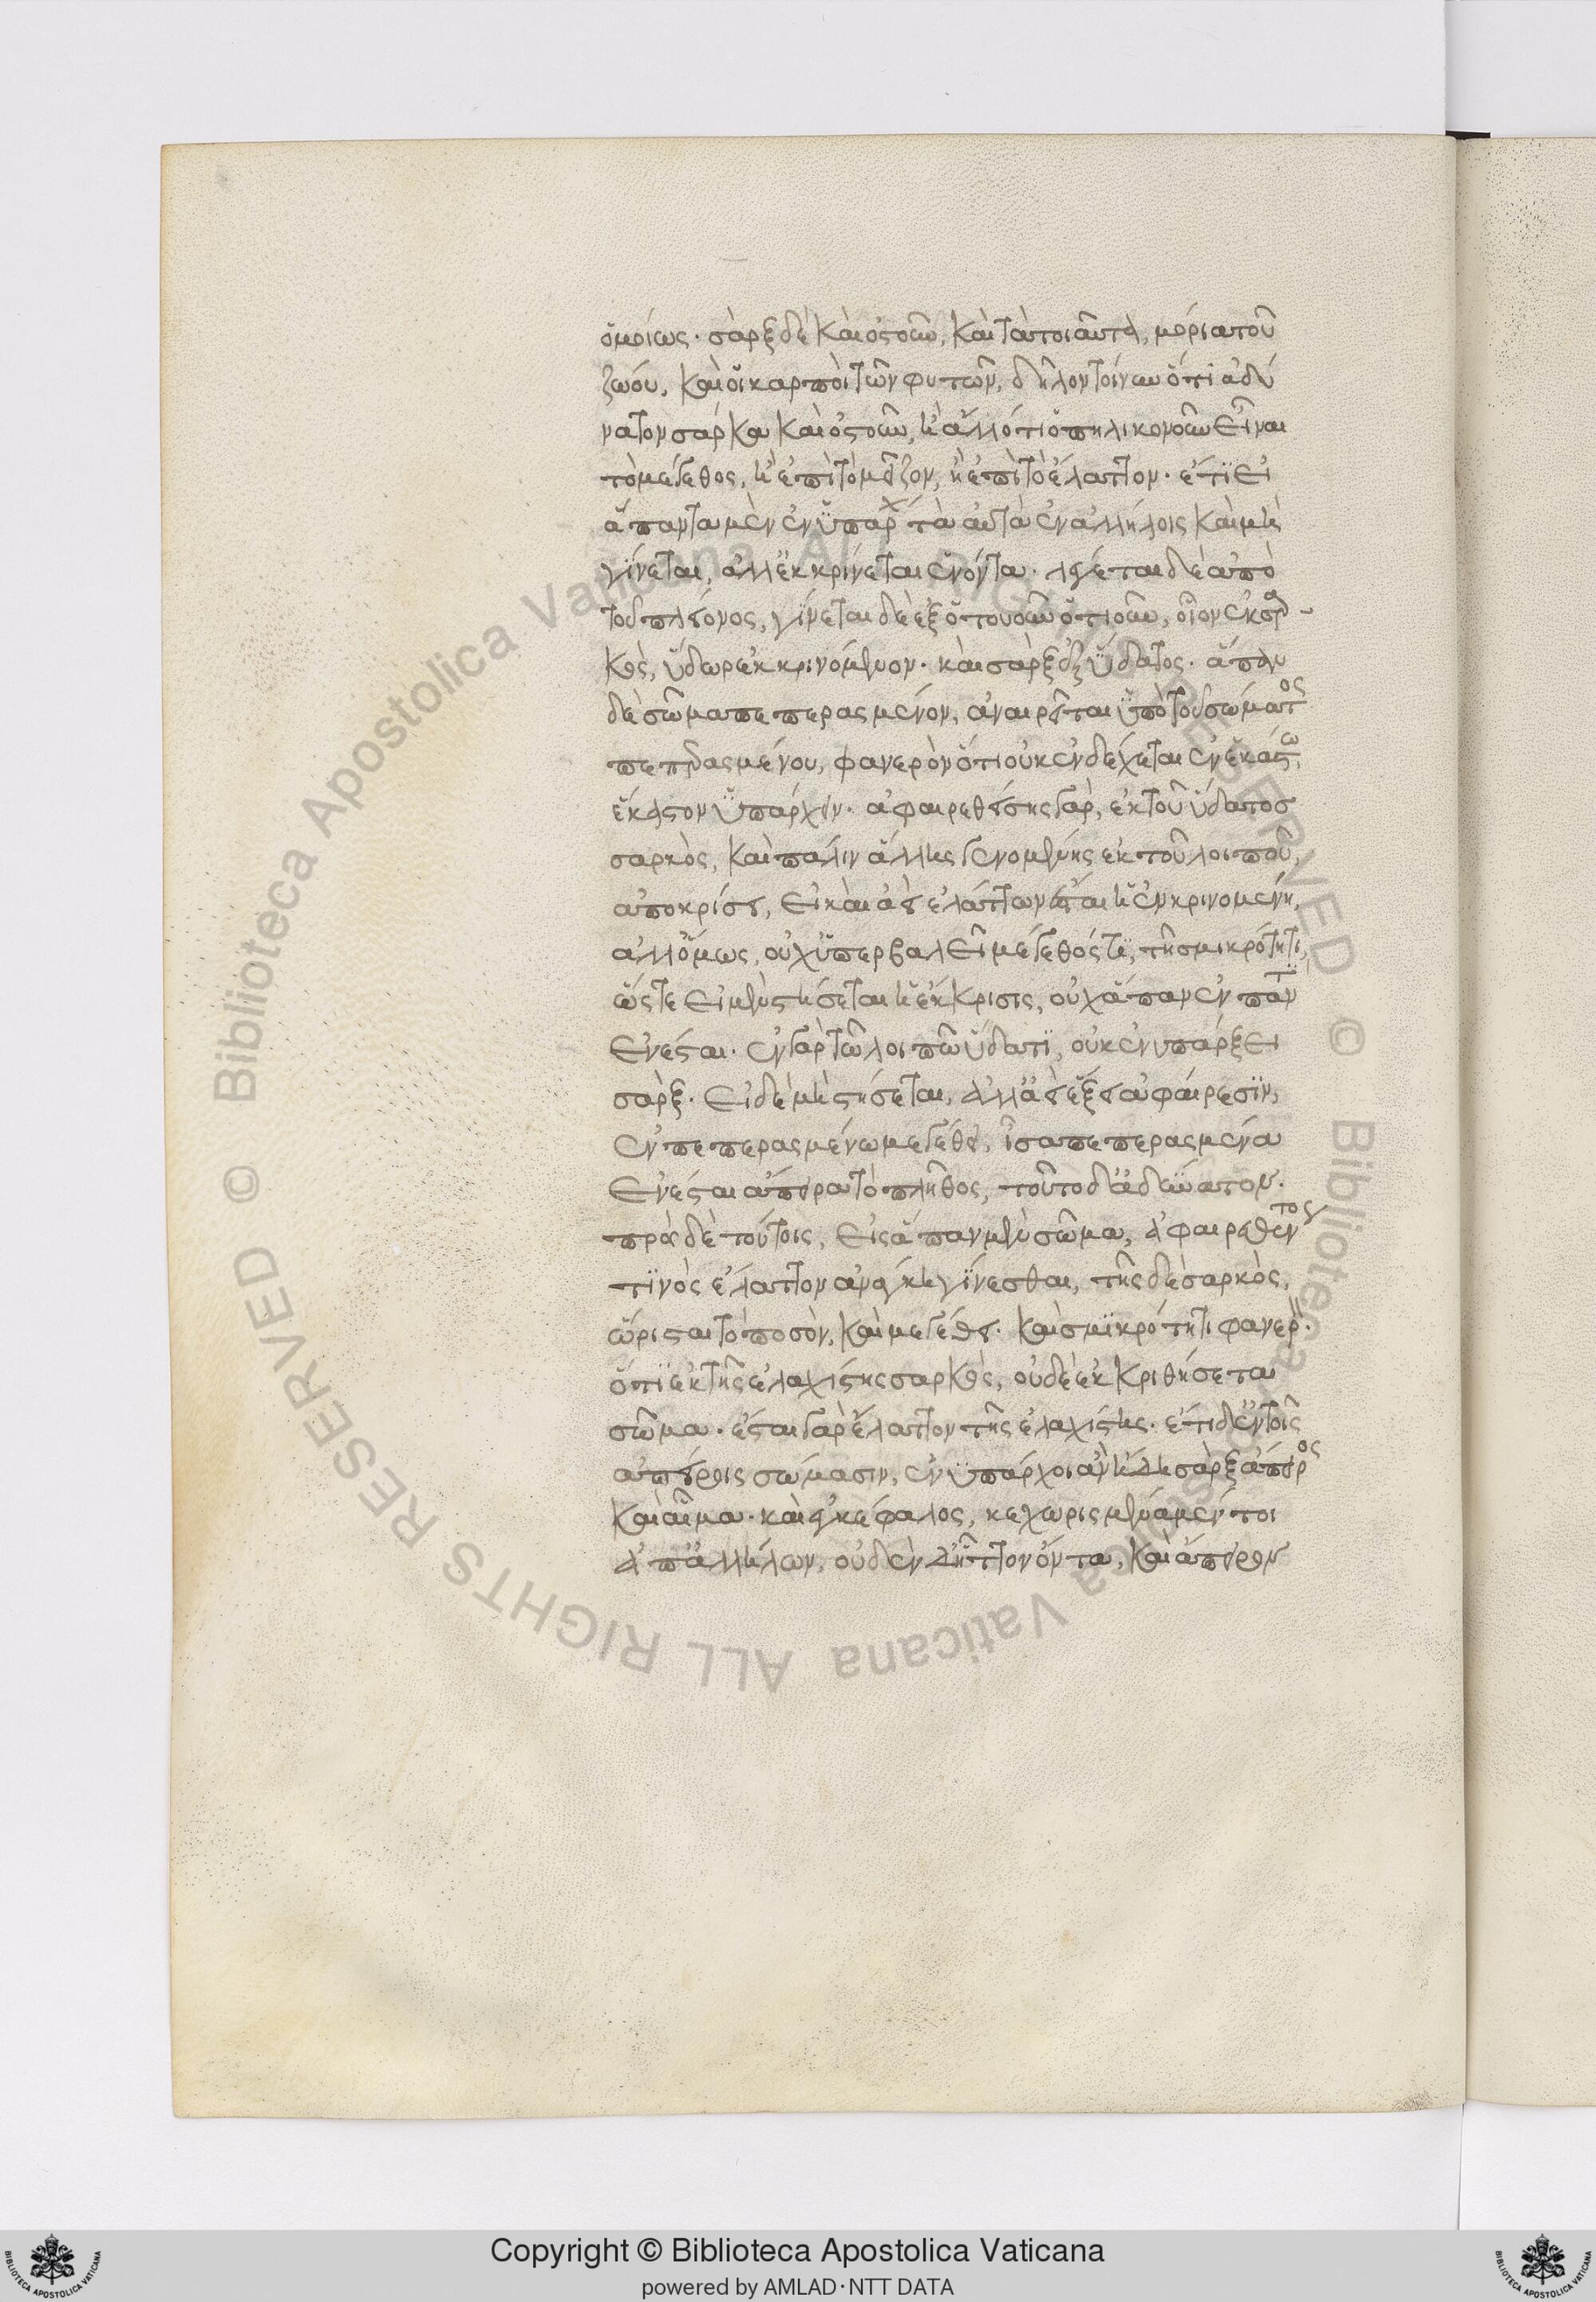 ὁμοίως. σὰρξ δὲ καὶ ὀστοῦν, καὶ τὰ τοιαῦτα, μόρια τοῦ
ζώου, καὶ οἱ καρποὶ τῶν φυτῶν, δῆλον τοίνυν ὅτι ἀδύ
νατον σάρκα καὶ ὀστοῦν, ἢ ἄλλό τι ὁπηλικονοῦν εἶναι
τὸ μέγεθος, ἢ ἐπὶ τὸ μεῖζον, ἢ ἐπὶ τὸ ἔλαττον. ἔτι εἰ
ἅπαντα μὲν ἐνϋπάρχ τὰ αὐτὰ ἐν ἀλλήλοις καὶ μὴ
γίνεται, ἀλλ' ἐκκρίνεται ἐνόντα. λέγεται δὲ ἀπὸ
τοῦ πλείονος, γίνεται δὲ ἐξ ὁτουοῦν ὁτιοῦν, οἷον ἐκ σαρ
κὸς, ὕδωρ ἐκκρινόμενον. καὶ σὰρξ ἐξ ὕδατος. ἅπαν
δὲ σῶμα πεπερασμένον, ἀναιρεῖται ὑπὸ τοῦ σώματος
πεπερασμένου, φανερὸν ὅτι οὐκ ἐνδέχεται ἐν ἑκάστω
ἕκαστον ὑπάρχειν. ἀφαιρεθείσης γὰρ, ἐκ τοῦ ὕδατος
σαρκὸς, καὶ πάλιν ἄλλης γενομένης ἐκ τοῦ λοιποῦ,
ἀποκρίσει, εἰ καὶ ἀεὶ ἐλάττων ἔσται ἡ ἐνκρινομένη,
ἀλλ' ὅμως, οὐχ ὑπερβαλεῖ μέγεθός τι, τῆ σμικρότητι,
ὥστε εἰ μὲν στήσεται ἡ ἔκκρισις, οὐχ ἅπαν ἐν παντὶ
ἐνέσται. ἐν γὰρ τῶ λοιπῶ ὕδατι, οὐκ ἐνυπάρξει
σὰρξ. εἰ δὲ μὴ στήσεται, ἀλλ' ἀεὶ ἕξει ἀφαίρεσιν,
ἐν πεπερασμένω μεγέθει, ἴσα πεπερασμένα
ἐνέσται ἄπειρα τὸ πλῆθος, τοῦτο δ' ἀδύνατον.
πρὸς δὲ τούτοις, εἰς ἅπαν μὲν σῶμα, ἀφαιρεθέντος
τινὸς ἔλαττον ἀνάγκη γίνεσθαι, τῆς δὲ σαρκὸς,
ὥρισται τὸ ποσὸν, καὶ μεγέθει. καὶ σμικρότητι φανερὸν.
ὅτι ἐκ τῆς ἐλαχίστης σαρκὸς, οὐδὲ ἐκκριθήσεται
σῶμα. ἔσται γὰρ ἔλαττον τῆς ἐλαχίστης. ἔτι δ' ἐν τοῖς
ἀπείροις σώμασιν, ἐνϋπάρχοι ἂν ἤδη σὰρξ ἄπειρος
καὶ αἷμα. καὶ ἐγκέφαλος, κεχωρισμένα μέντοι
ἀπ' ἀλλήλων, οὐδὲν δ' ἧττον ὄντα, καὶ ἄπειρον